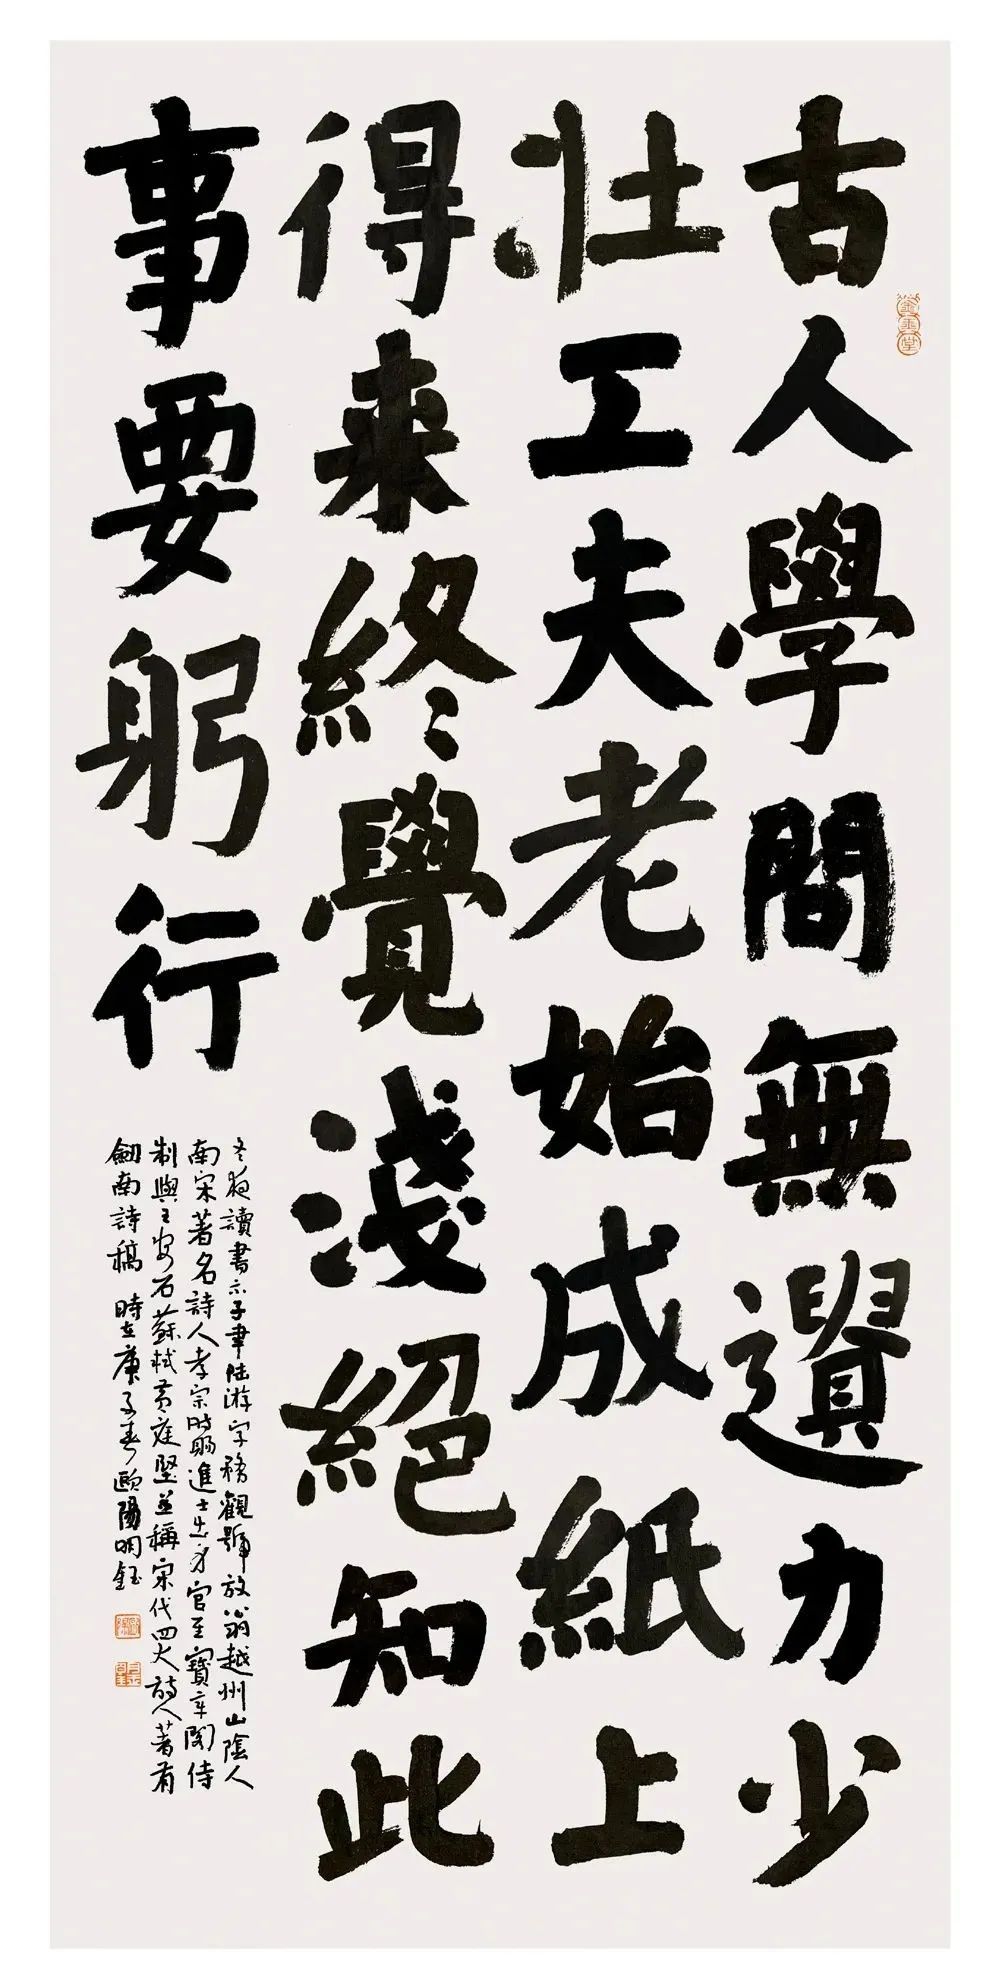 古人學問無遺力少
壯工夫老始成紙上
得来終覺淺絕知此
事要躬行
冬夜讀書示子聿陸游字務觀號放翁越州山陰人
南宋著名詩人孝宗時賜進士出身官至寶章閣侍
制與王安石蘇軾黃庭堅並稱宋代四大詩人著有
劍南詩稿 時在庚子春歐陽明鈺